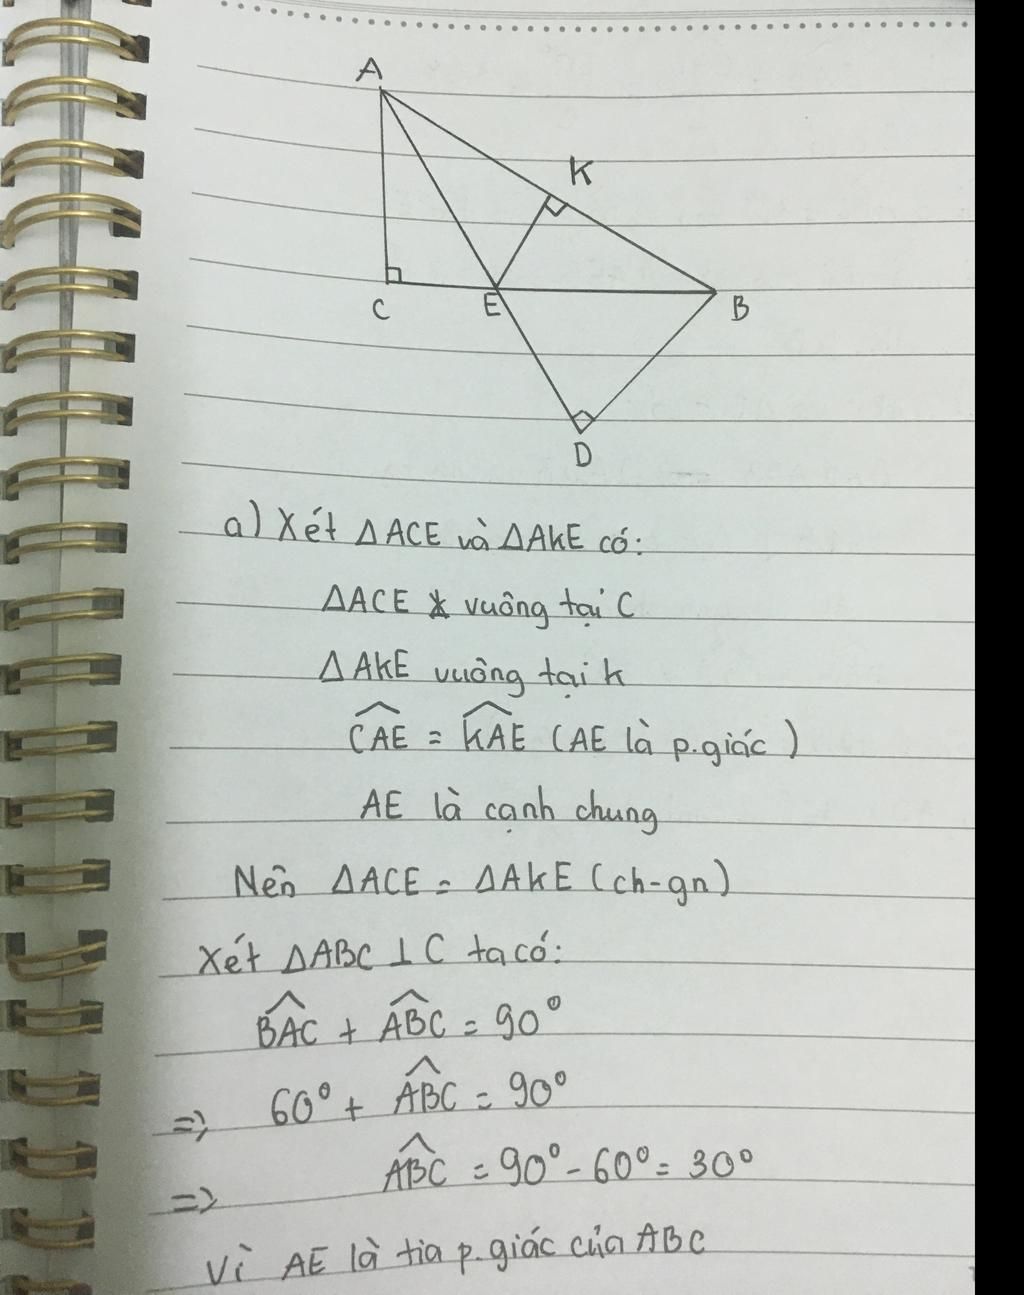 A
K
C
E
B
D
a) Xét ΔACE và ΔAKE có:
ΔACE vuông tại C
ΔAKE vuông tại k
\widehat{CAE} = \widehat{KAE} (AE là p.giác)
AE là cạnh chung
Nên ΔACE = ΔAKE (ch-gn)
Xét ΔABC ⊥ C ta có:
\widehat{BAC} + \widehat{ABC} = 90°
=> 60° + \widehat{ABC} = 90°
=> \widehat{ABC} = 90° - 60° = 30°
Vì AE là tia p.giác của ABC